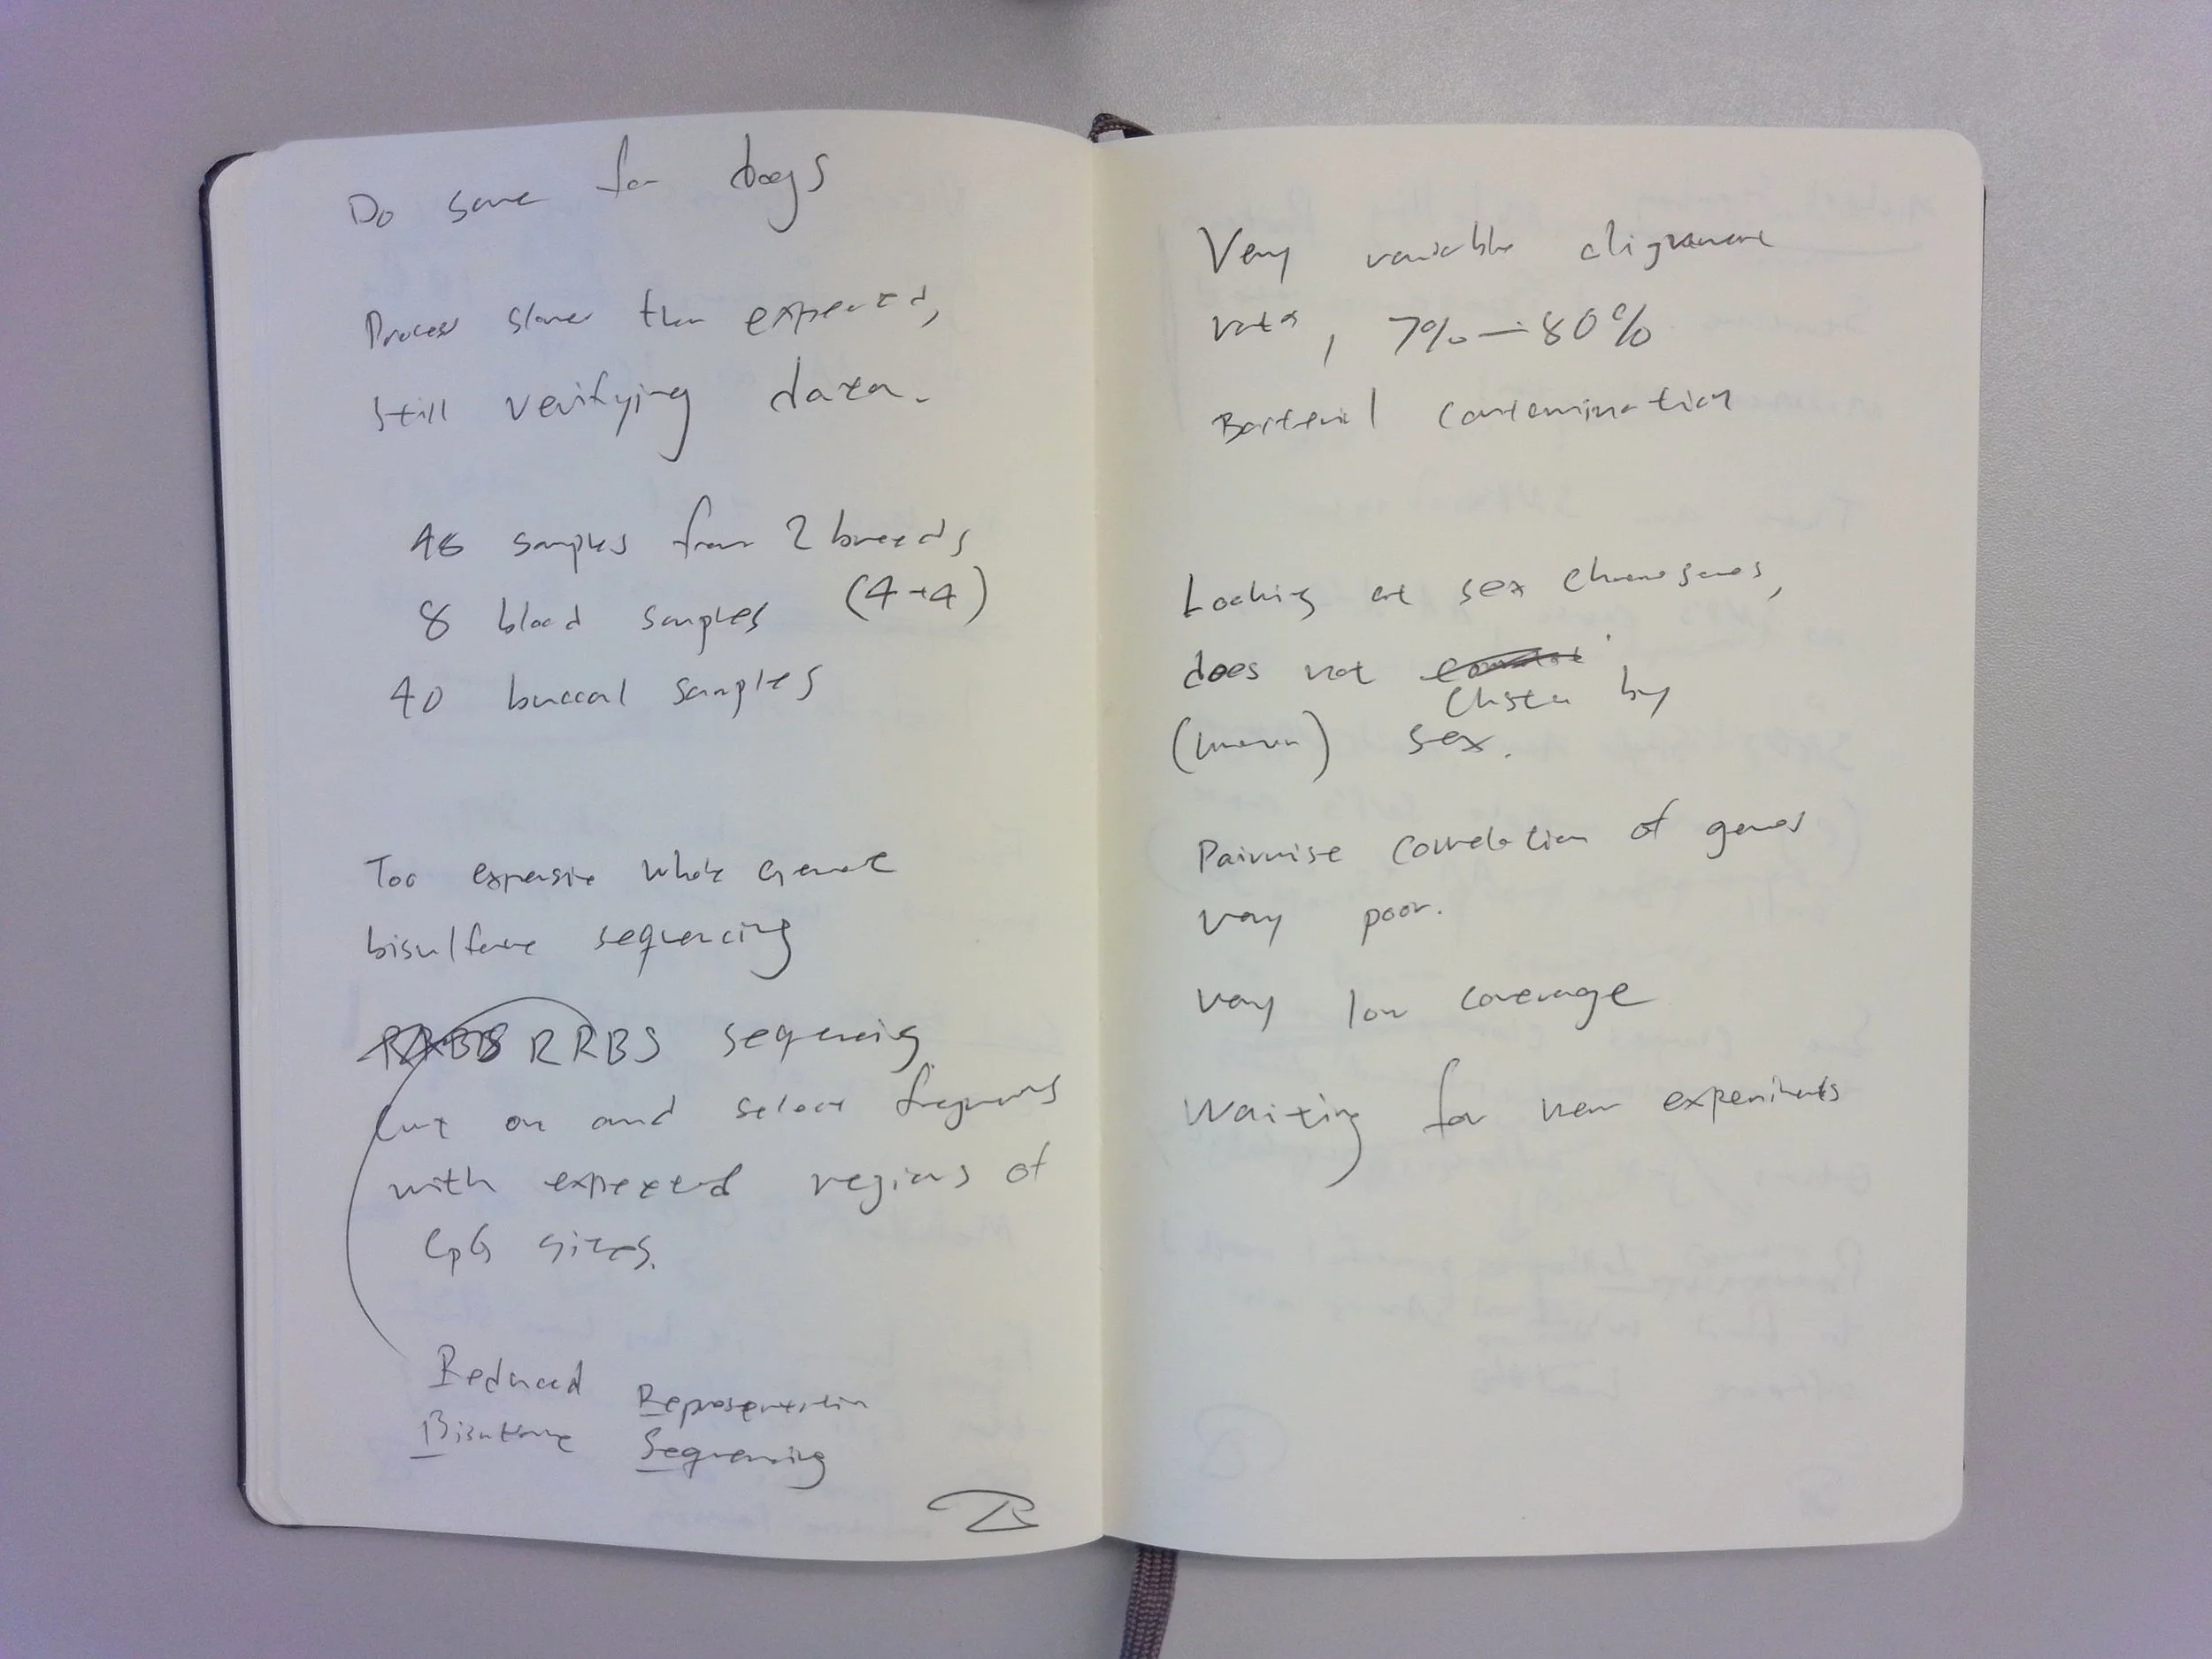 Do same for dogs
Process slower than expected,
still verifying data.
48 samples from 2 breeds
8 blood samples (4+4)
40 buccal samples
Too expensive whole genome
bisulfame sequencing
RRBS sequencing
Cut on and select fragments
with expected regions of
CpG sites.
Reduced Representation
Bisulfame Sequencing
Very variable alignment
rate, 7%-80%
Bacterial contamination
Looking at sex chromosomes,
does not
cluster by
(known) sex.
Pairwise correlation of genes
very poor.
very low coverage
Waiting for new experiments